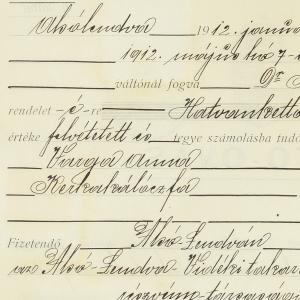 Alsólendva 1912. január
1912. május hó 7-
váltónál fogva Or
rendelet - é - re Hatvankettő
értéke felvétetett és tegye számolásba tudó
Varga Anna
Kerkakálócfa
Fizetendő Alsó-Lendván
az Alsó-Lendva-Vidéki taka
részvény-társaság